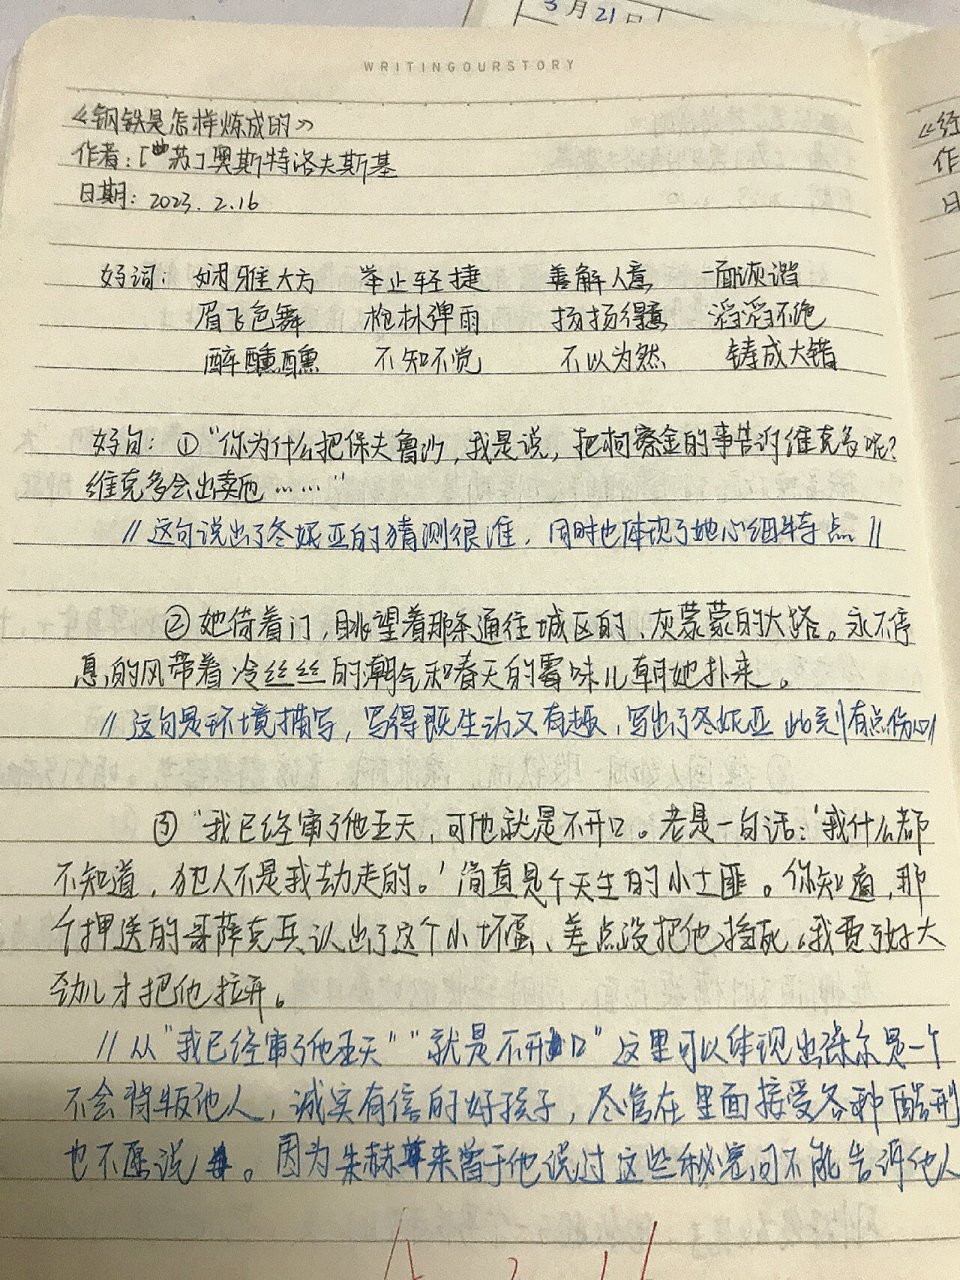 3月21日
WRITINGOURSTORY
《钢铁是怎样炼成的》
作者:[苏]奥斯特洛夫斯基
日期: 2023.2.16
好词: 娴雅大方 举止轻捷 善解人意 一面诙谐
眉飞色舞 枪林弹雨 扬扬得意 滔滔不绝
醉醺醺 不知不觉 不以为然 铸成大错
好句: ①“你为什么把保夫鲁沙,我是说,把柯察金的事告诉维克多呢?
维克多会出卖他……”
//这句说出了冬妮亚的猜测很准,同时也体现了她心细特点//
②她倚着门,眺望着那条通往城区的、灰蒙蒙的大路。永不停
息的风带着冷丝丝的潮气和春天的霉味儿朝她扑来。
//这句是环境描写,写得既生动又有趣,写出了冬妮亚此刻有点伤心//
③“我已经审了他五天,可他就是不开口。老是一句话:‘我什么都
不知道,犯人不是我劫走的。’简直是个天生的小土匪。你知道,那
个押送的哥萨克兵认出了这个小坏蛋、差点没把他掐死,我费了好大
劲儿才把他拉开。
//从“我已经审了他五天”“就是不开口”这里可以体现出保尔是一个
不会背叛他人,诚实有信的好孩子,尽管在里面接受各种酷刑
也不愿说。因为朱赫来曾于他说过这些秘密问不能告诉他人
《经
作
日